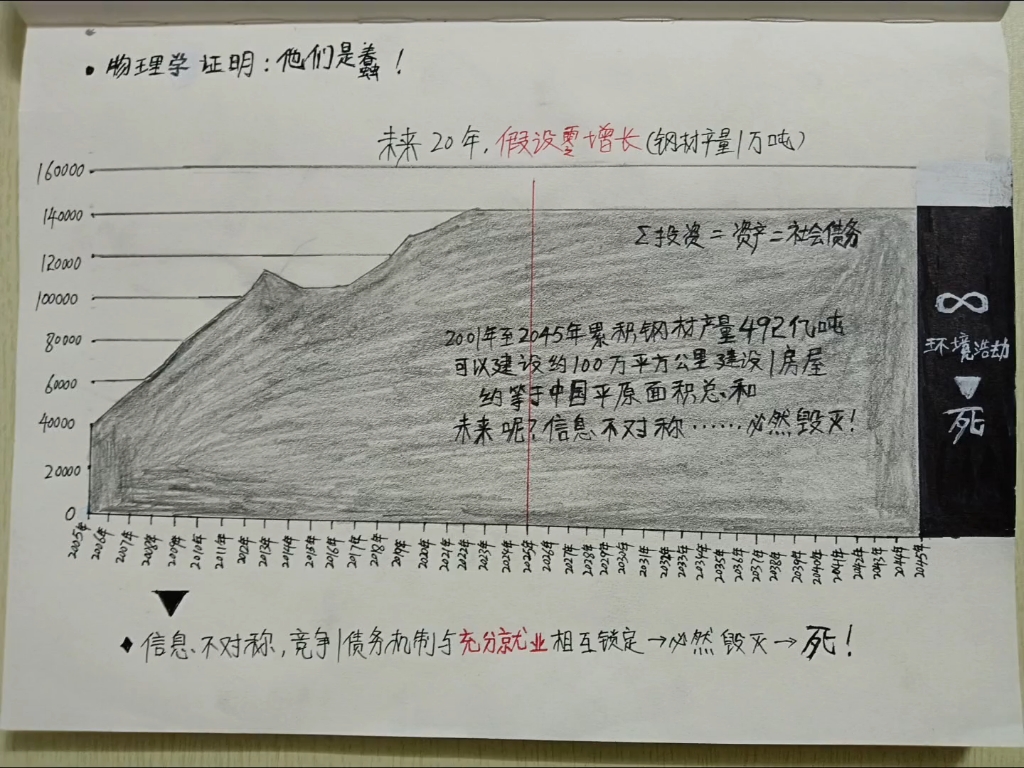 • 物理学证明:他们是蠢!
未来20年,假设零增长(钢材产量/万吨)
160000
140000
120000
100000
80000
60000
40000
20000
0
Σ投资=资产=社会债务
2001年至2045年累积钢材产量492亿吨
可以建设约100万平方公里建设/房屋
约等于中国平原面积总和
未来呢?信息不对称……必然毁灭!
∞
环境浩劫
▼
死
2005年 2006年 2007年 2008年 2009年 2010年 2011年 2012年 2013年 2014年 2015年 2016年 2017年 2018年 2019年 2020年 2021年 2022年 2023年 2024年 2025年 2026年 2027年 2028年 2029年 2030年 2031年 2032年 2033年 2034年 2035年 2036年 2037年 2038年 2039年 2040年 2041年 2042年 2043年 2044年 2045年
▼
♦ 信息不对称,竞争/债务机制与充分就业相互锁定→必然毁灭→死!